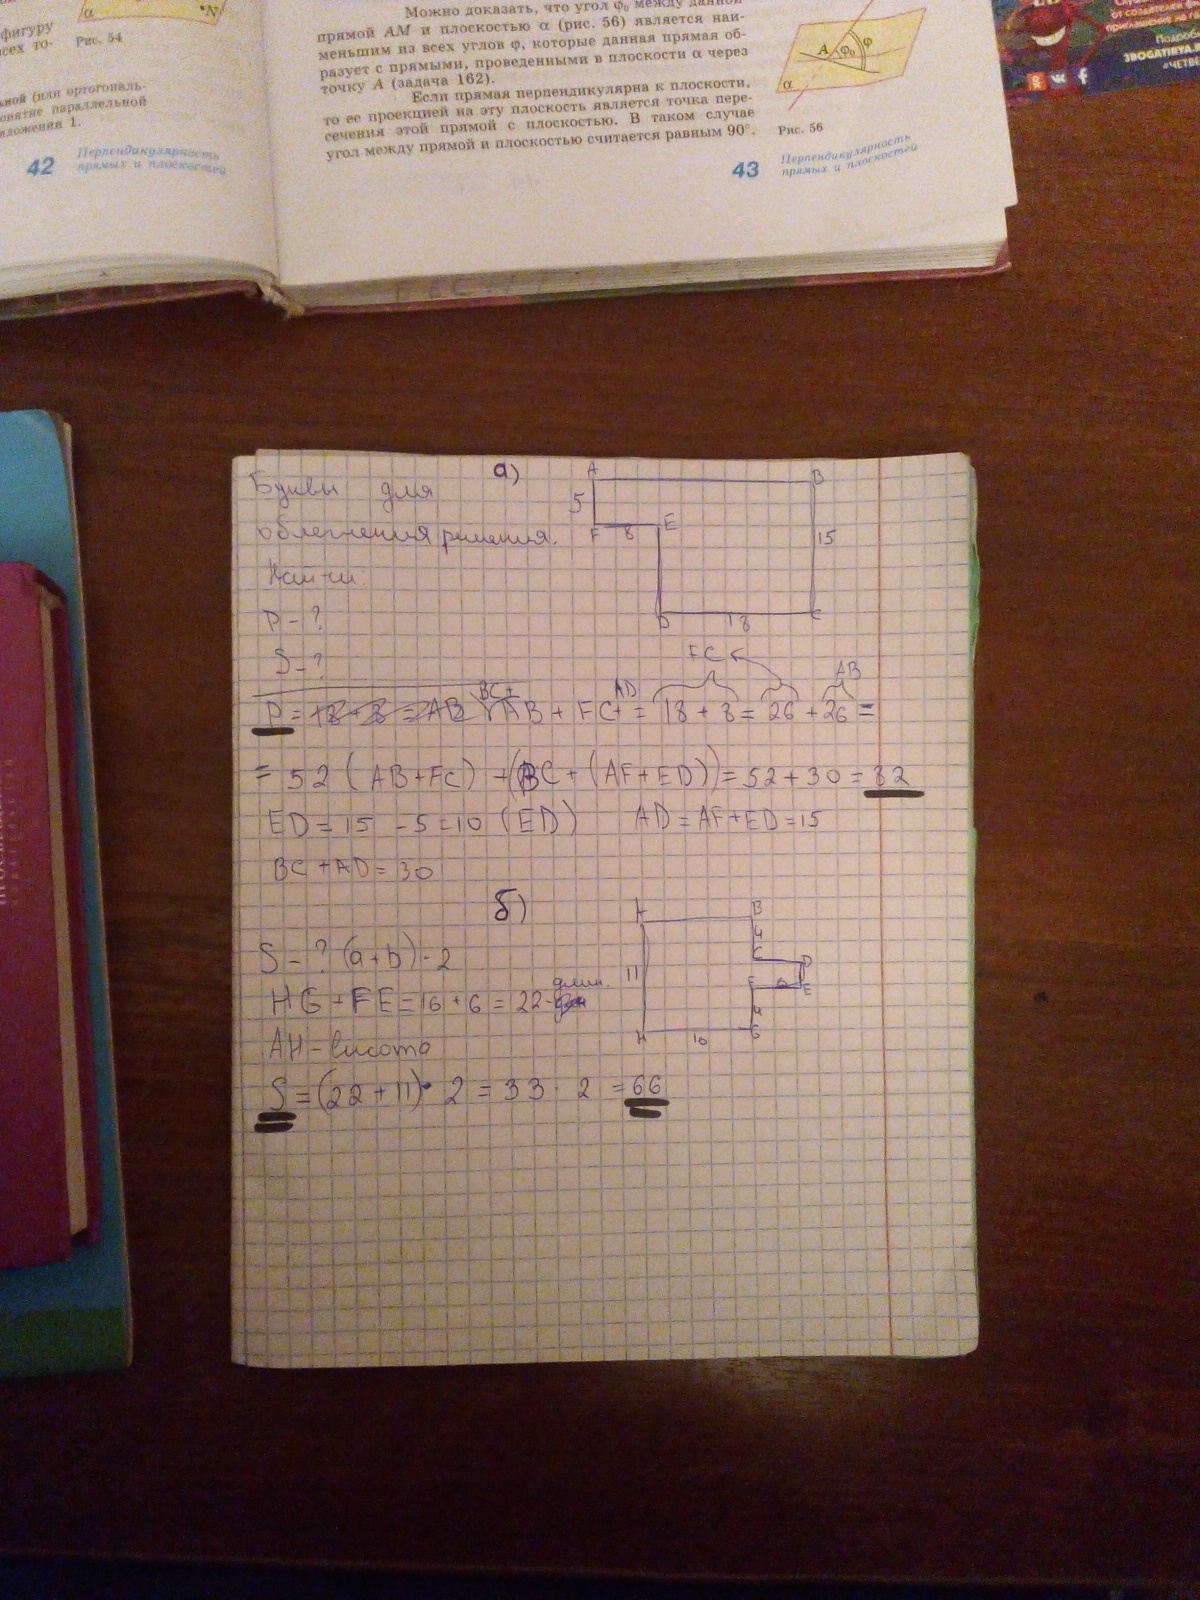 α
•N
Рис. 54
фигуру
всех то-
ьной (или ортогональ-
онятие параллельной
иложении 1.
42
Перпендикулярность
прямых и плоскостей
Можно доказать, что угол φ₀ между данной
прямой AM и плоскостью α (рис. 56) является наи-
меньшим из всех углов φ, которые данная прямая об-
разует с прямыми, проведенными в плоскости α через
точку A (задача 162).
Если прямая перпендикулярна к плоскости,
то ее проекцией на эту плоскость является точка пере-
сечения этой прямой с плоскостью. В таком случае
угол между прямой и плоскостью считается равным 90°.
A φ₀ φ
α
Рис. 56
43
Перпендикулярность
прямых и плоскостей
от создателей
приглашение на
Подробн
3BOGATIRYA.
#ЧЕТВЕ
а)
Буквы для
облегчения решения.
Найти:
P - ?
S - ?
A B
5
F 8 E
15
D 18 C
FC AB
BC+ AD
P = AB + FC+ = 18 + 8 = 26 + 26 =
= 52 (AB+FC) + (BC + (AF+ED)) = 52 + 30 = 82
ED = 15 - 5 = 10 (ED) AD = AF+ED = 15
BC + AD = 30
б)
A B
4
C D
11
F 6 E
4
H 10 G
S - ? (a+b) · 2
HG + FE = 16 + 6 = 22 - длин.
AH - высота
S = (22 + 11) · 2 = 33 · 2 = 66